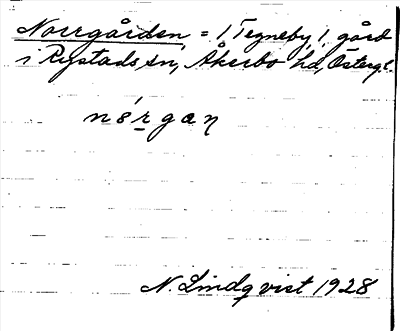 Norrgården = 1 Tegneby, 1 gård
i Rystads sn, Åkerbo hd, Österg.
nórgan
N. Lindqvist 1928